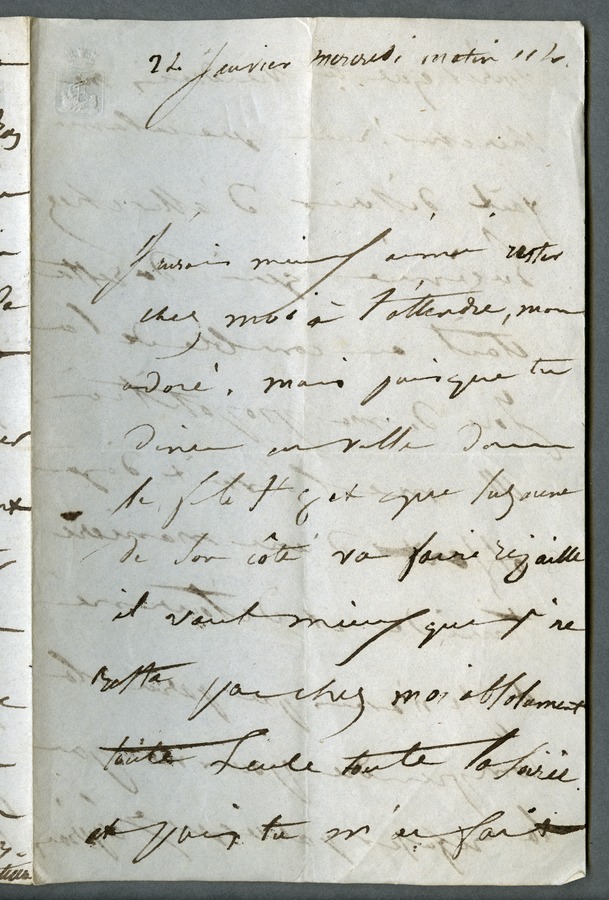 22 janvier mercredi matin 11 h.
J'aurais mieux aimé rester
chez moi à t'attendre, mon
adoré, mais puisque tu
dines en ville
et que Suzanne
de son côté va faire ripaille
il vaut mieux que je ne
reste pas chez moi absolument
toute seule toute la soirée
et puis tu m'as fait